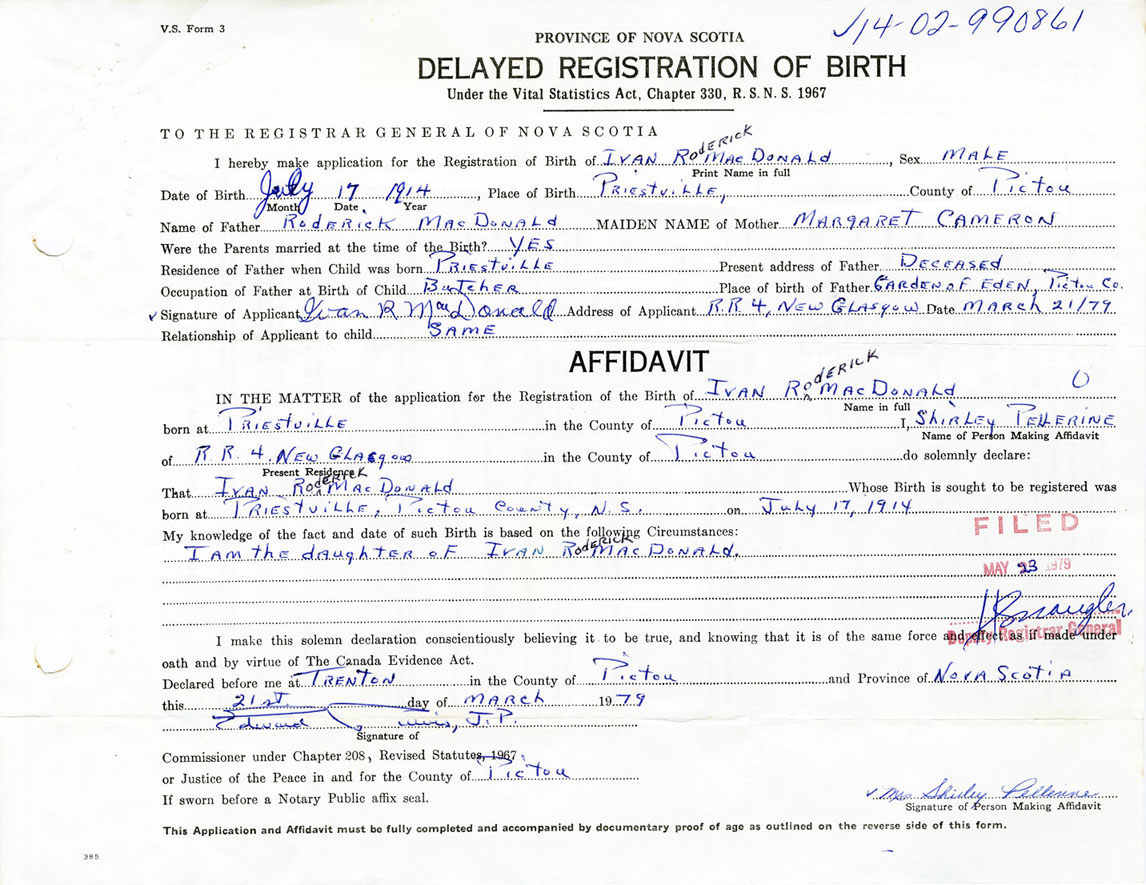 V.S. Form 3
J14-02-990861
PROVINCE OF NOVA SCOTIA
DELAYED REGISTRATION OF BIRTH
Under the Vital Statistics Act, Chapter 330, R. S. N. S. 1967
TO THE REGISTRAR GENERAL OF NOVA SCOTIA
I hereby make application for the Registration of Birth of IVAN RODERICK MACDONALD, Sex MALE
Print Name in full
Date of Birth July 17 1914, Place of Birth PRIESTVILLE, County of Pictou
Month Date Year
Name of Father RODERICK MACDONALD MAIDEN NAME of Mother MARGARET CAMERON
Were the Parents married at the time of the Birth? YES
Residence of Father when Child was born PRIESTVILLE Present address of Father DECEASED
Occupation of Father at Birth of Child BUTCHER Place of birth of Father GARDEN OF EDEN, Pictou Co.
Signature of Applicant Ivan R MacDonald Address of Applicant R.R 4, NEW GLASGOW Date MARCH 21/79
Relationship of Applicant to child SAME
AFFIDAVIT
IN THE MATTER of the application for the Registration of the Birth of IVAN RODERICK MACDONALD
Name in full
born at PRIESTVILLE in the County of Pictou I, SHIRLEY PELLERINE
Name of Person Making Affidavit
of R.R. 4, NEW GLASGOW in the County of Pictou do solemnly declare:
Present Residence
That IVAN RODERICK MACDONALD Whose Birth is sought to be registered was
born at PRIESTVILLE, Pictou County, N.S. on July 17, 1914
My knowledge of the fact and date of such Birth is based on the following Circumstances:
I AM the daughter of IVAN RODERICK MACDONALD.
FILED
MAY 23 1979
I make this solemn declaration conscientiously believing it to be true, and knowing that it is of the same force and effect as if made under
Deputy Registrar General
oath and by virtue of The Canada Evidence Act.
Declared before me at TRENTON in the County of Pictou and Province of NOVA SCOTIA
this 21st day of MARCH 1979
Edward J.P.
Signature of
Commissioner under Chapter 208, Revised Statutes, 1967
or Justice of the Peace in and for the County of Pictou
If sworn before a Notary Public affix seal.
Mrs Shirley Pellerine
Signature of Person Making Affidavit
This Application and Affidavit must be fully completed and accompanied by documentary proof of age as outlined on the reverse side of this form.
385